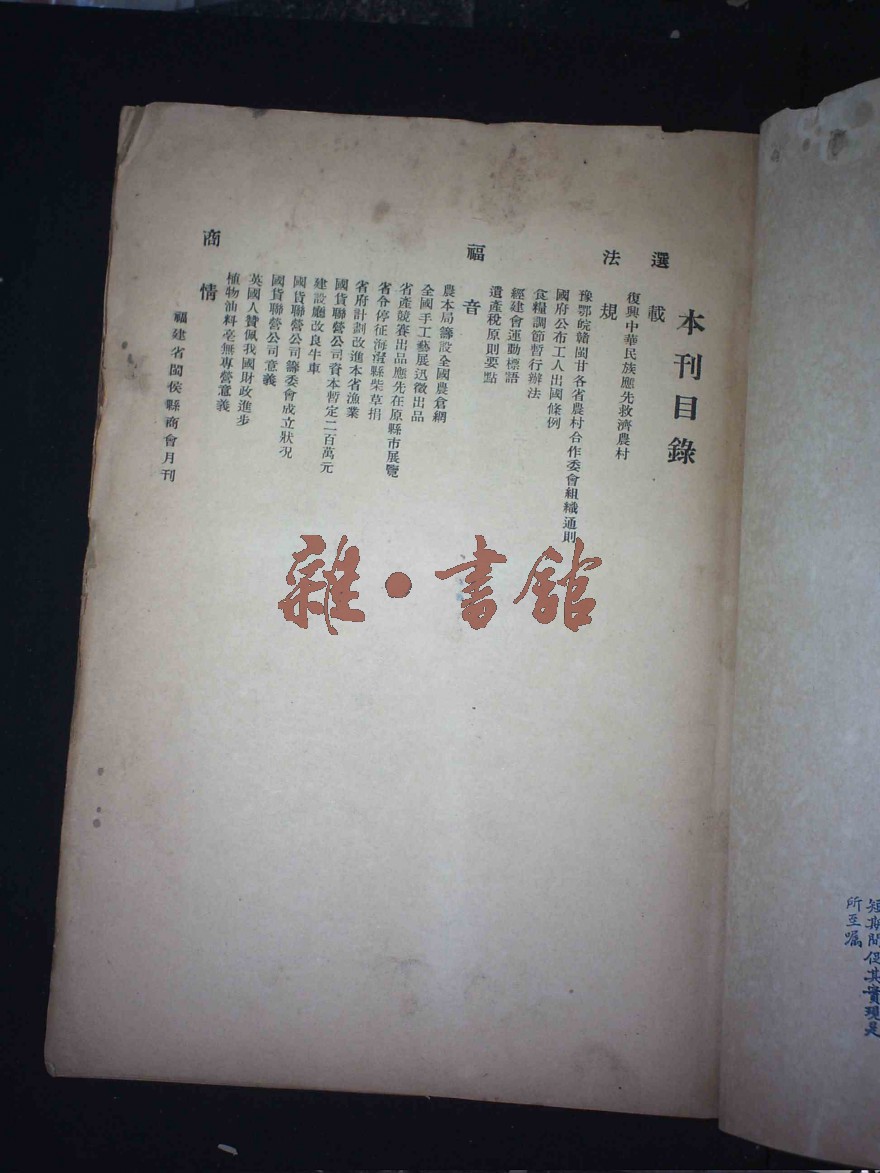 本刊目錄
選載
復興中華民族應先救濟農村
法規
豫鄂皖贛閩甘各省農村合作委會組織通則
國府公布工人出國條例
食糧調節暫行辦法
經建會運動標語
遺產稅原則要點
福音
農本局籌設全國農倉網
全國手工藝展迅徵出品
省產競賽出品應先在原縣市展覽
省令停征海澄縣柴草捐
省府計劃改進本省漁業
國貨聯營公司資本暫定二百萬元
建設廳改良牛車
國貨聯營公司籌委會成立狀況
國貨聯營公司意義
英國人贊佩我國財政進步
植物油料毫無專營意義
商情
福建省閩侯縣商會月刊
雜·書館
短期間促其實現是
所至囑